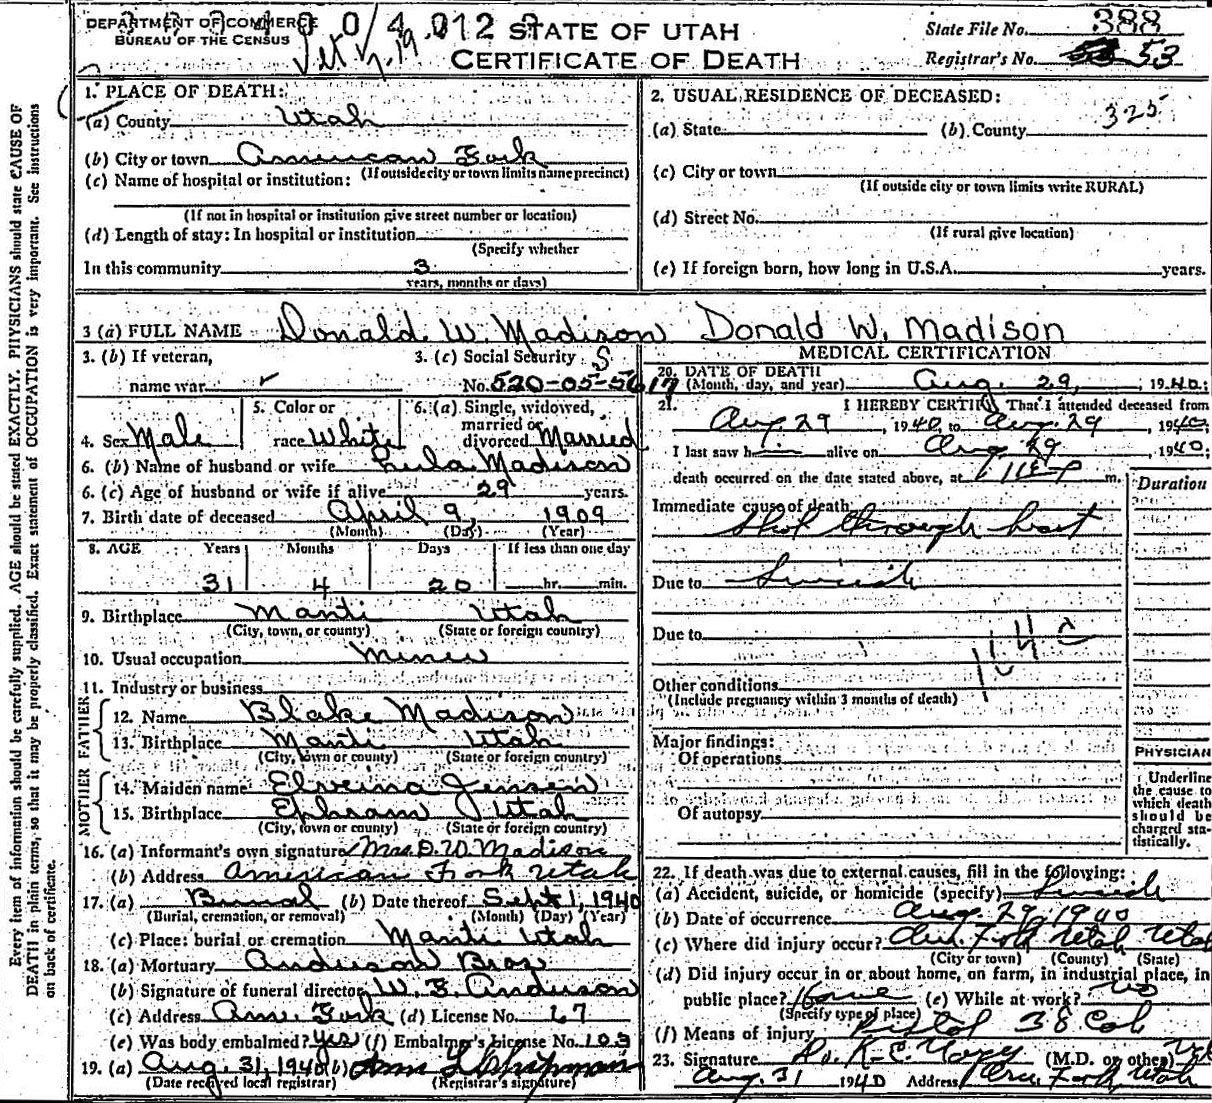 DEPARTMENT OF COMMERCE
BUREAU OF THE CENSUS
STATE OF UTAH
CERTIFICATE OF DEATH
State File No. 388
Registrar's No. 53
Every item of information should be carefully supplied. AGE should be stated EXACTLY. PHYSICIANS should state CAUSE OF
DEATH in plain terms, so that it may be properly classified. Exact statement of OCCUPATION is very important. See instructions
on back of certificate.
1. PLACE OF DEATH:
(a) County Utah
(b) City or town American Fork
(If outside city or town limits name precinct)
(c) Name of hospital or institution:
(If not in hospital or institution give street number or location)
(d) Length of stay: In hospital or institution
(Specify whether
In this community 3
years, months or days)
2. USUAL RESIDENCE OF DECEASED:
325
(a) State (b) County
(c) City or town
(If outside city or town limits write RURAL)
(d) Street No.
(If rural give location)
(e) If foreign born, how long in U.S.A. years.
3 (a) FULL NAME Donald W. Madison Donald W. Madison
3. (b) If veteran,
name war
3. (c) Social Security
No. 520-05-5617
4. Sex Male
5. Color or
race White
6. (a) Single, widowed,
married or
divorced Married
6. (b) Name of husband or wife Lula Madison
6. (c) Age of husband or wife if alive 29 years.
7. Birth date of deceased April 9, 1909
(Month) (Day) (Year)
8. AGE Years Months Days If less than one day
31 4 20 hr. min.
9. Birthplace Manti Utah
(City, town, or county) (State or foreign country)
10. Usual occupation Miner
11. Industry or business
FATHER
12. Name Blake Madison
13. Birthplace Manti Utah
(City, town or county) (State or foreign country)
MOTHER
14. Maiden name Elveina Jensen
15. Birthplace Ephraim Utah
(City, town or county) (State or foreign country)
16. (a) Informant's own signature Mrs. D. W. Madison
(b) Address American Fork Utah
17. (a) Burial (b) Date thereof Sept 1, 1940
(Burial, cremation, or removal) (Month) (Day) (Year)
(c) Place: burial or cremation Manti Utah
18. (a) Mortuary Anderson Bros
(b) Signature of funeral director W. E. Anderson
(c) Address Am. Fork (d) License No. 67
(e) Was body embalmed? yes (f) Embalmer's License No. 103
19. (a) Aug. 31, 1940 (b)
(Date received local registrar) (Registrar's signature)
MEDICAL CERTIFICATION
20. DATE OF DEATH
(Month, day, and year) Aug. 29, 1940;
21. I HEREBY CERTIFY, That I attended deceased from
Aug. 29, 1940, to Aug. 29, 1940;
I last saw h alive on Aug 29 1940;
death occurred on the date stated above, at m.
Duration
Immediate cause of death
Shot through heart
Due to Suicide
Due to
Other conditions
(Include pregnancy within 3 months of death)
Major findings:
Of operations
Of autopsy
PHYSICIAN
Underline
the cause to
which death
should be
charged sta-
tistically.
22. If death was due to external causes, fill in the following:
(a) Accident, suicide, or homicide (specify) Suicide
(b) Date of occurrence Aug. 29, 1940
(c) Where did injury occur? Am. Fork Utah Utah
(City or town) (County) (State)
(d) Did injury occur in or about home, on farm, in industrial place, in
public place? Home (e) While at work? no
(Specify type of place)
(f) Means of injury Pistol 38 Colt
23. Signature (M.D. or other)
Aug. 31 1940 Address Am. Fork, Utah